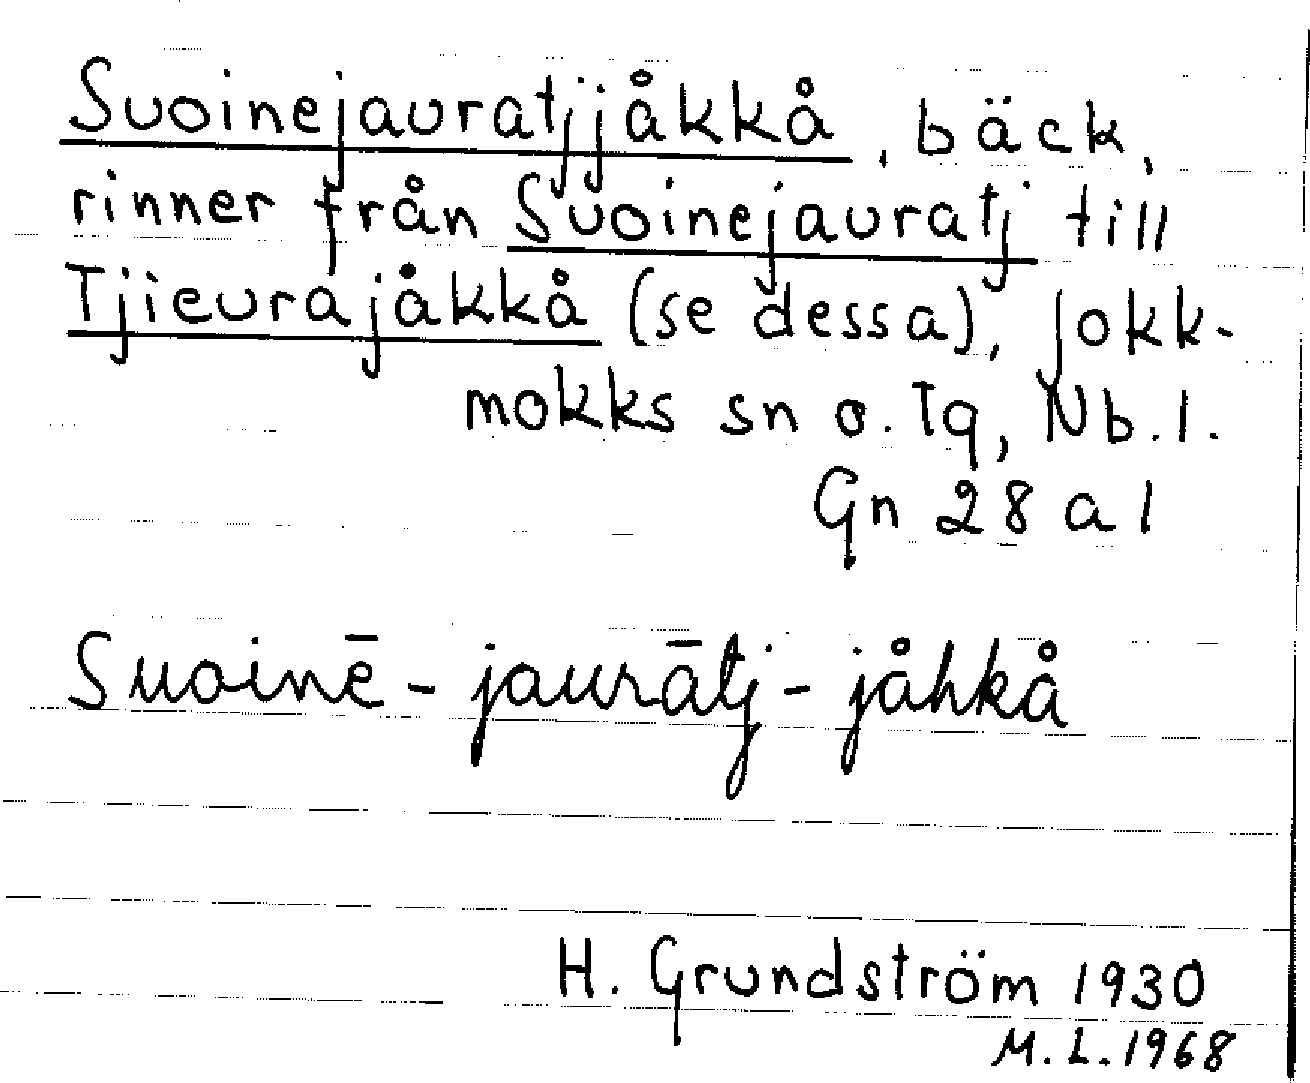 Suoinejauratjjåkkå, bäck,
rinner från Suoinejauratj till
Tjieurajåkkå (se dessa), Jokk-
mokks sn o. Tg, Nb.l.
Gn 28 a 1
Suoinē-jaurātj-jåhkå
H. Grundström 1930
M.L.1968